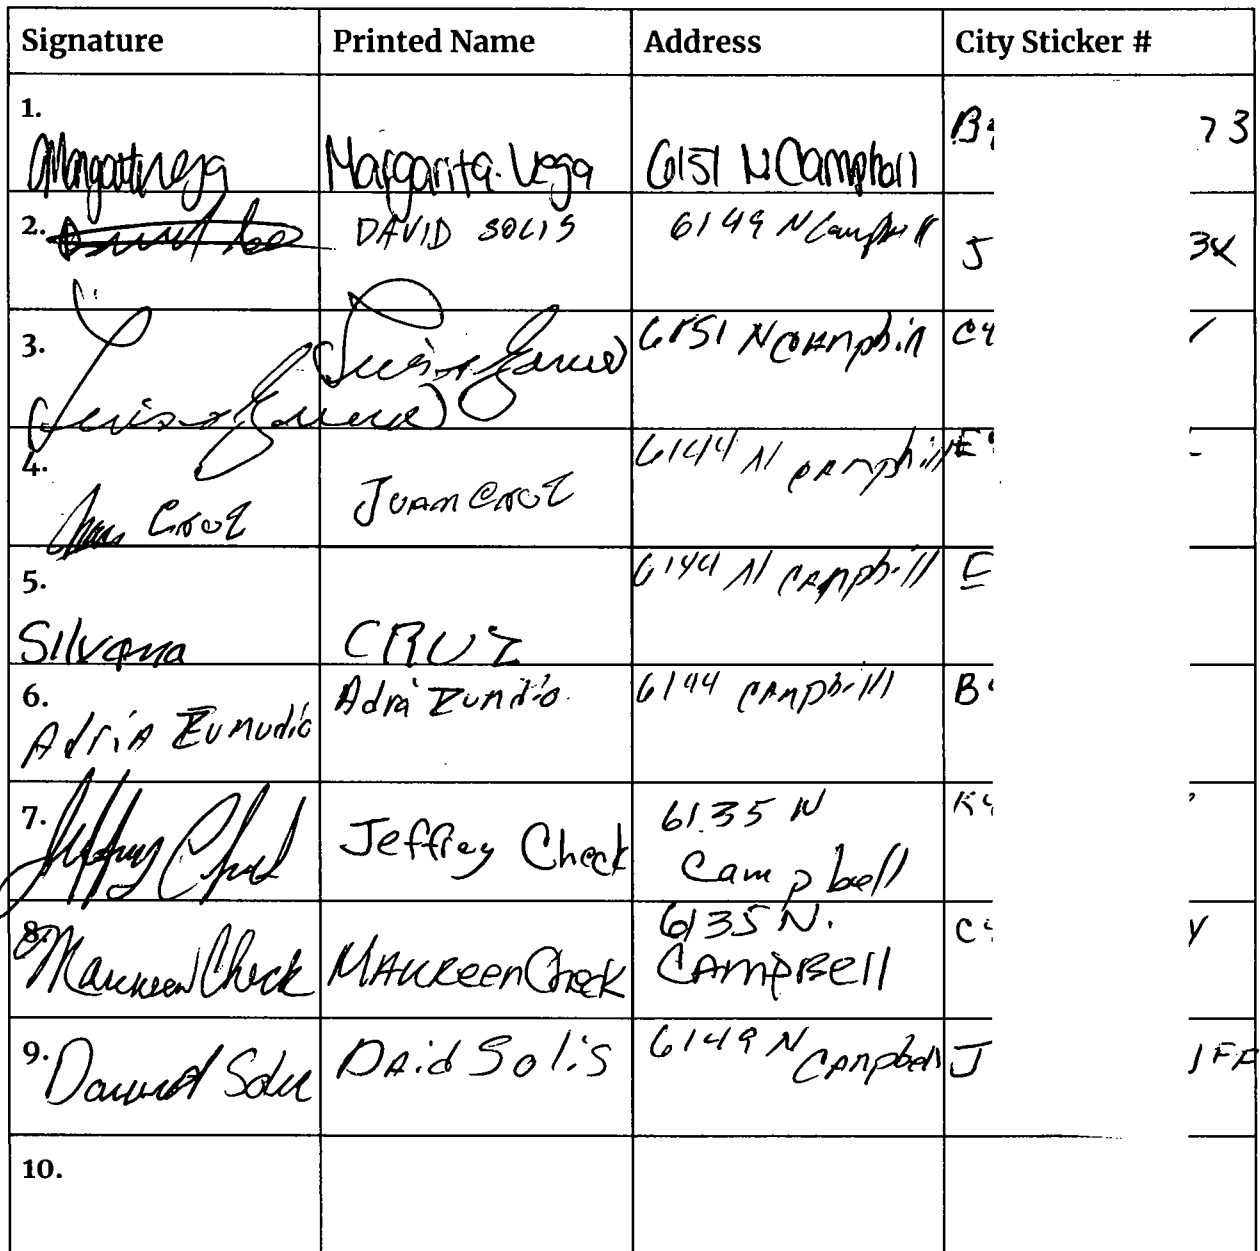 Signature Printed Name Address City Sticker #
1.
Margarita Vega Margarita. Vega 6151 N Campbell B 73
2. DAVID SOLIS 6149 N Campbell J 3X
3. 6151 N CAMpbill C4
4. Juan Cruz JUAN CruZ 6144 N CAMpbill E
5. 6144 N CAMpbill E
Silvana CRUZ
6. AdriA Zumudio Adria Zundio. 6144 CAMpbill B
7. Jeffrey Check Jeffrey Check 6135 N K
Campbell
8. Maureen Check MAUREEN Check 6135 N. C Y
CAMPBELL
9. David Solis DAid Solis 6149 N Campbell J 1FF
10.